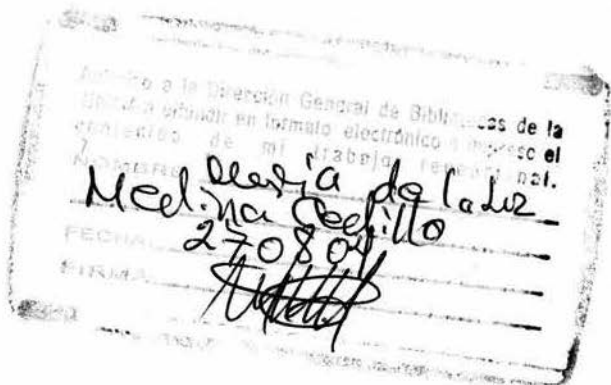 Autorizo a la Dirección General de Bibliotecas de la
UNAM a difundir en formato electrónico e impreso el
contenido de mi trabajo recepcional.
NOMBRE María de la Luz
Medina Cedillo
FECHA 270804
FIRMA